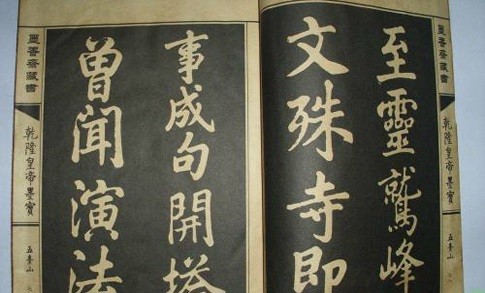 墨香齋藏書
乾隆皇帝墨寶
五臺山
至靈鷲峰
文殊寺即
事成句開塔
曾聞演法
墨香齋藏書
乾隆皇帝墨寶
五臺山